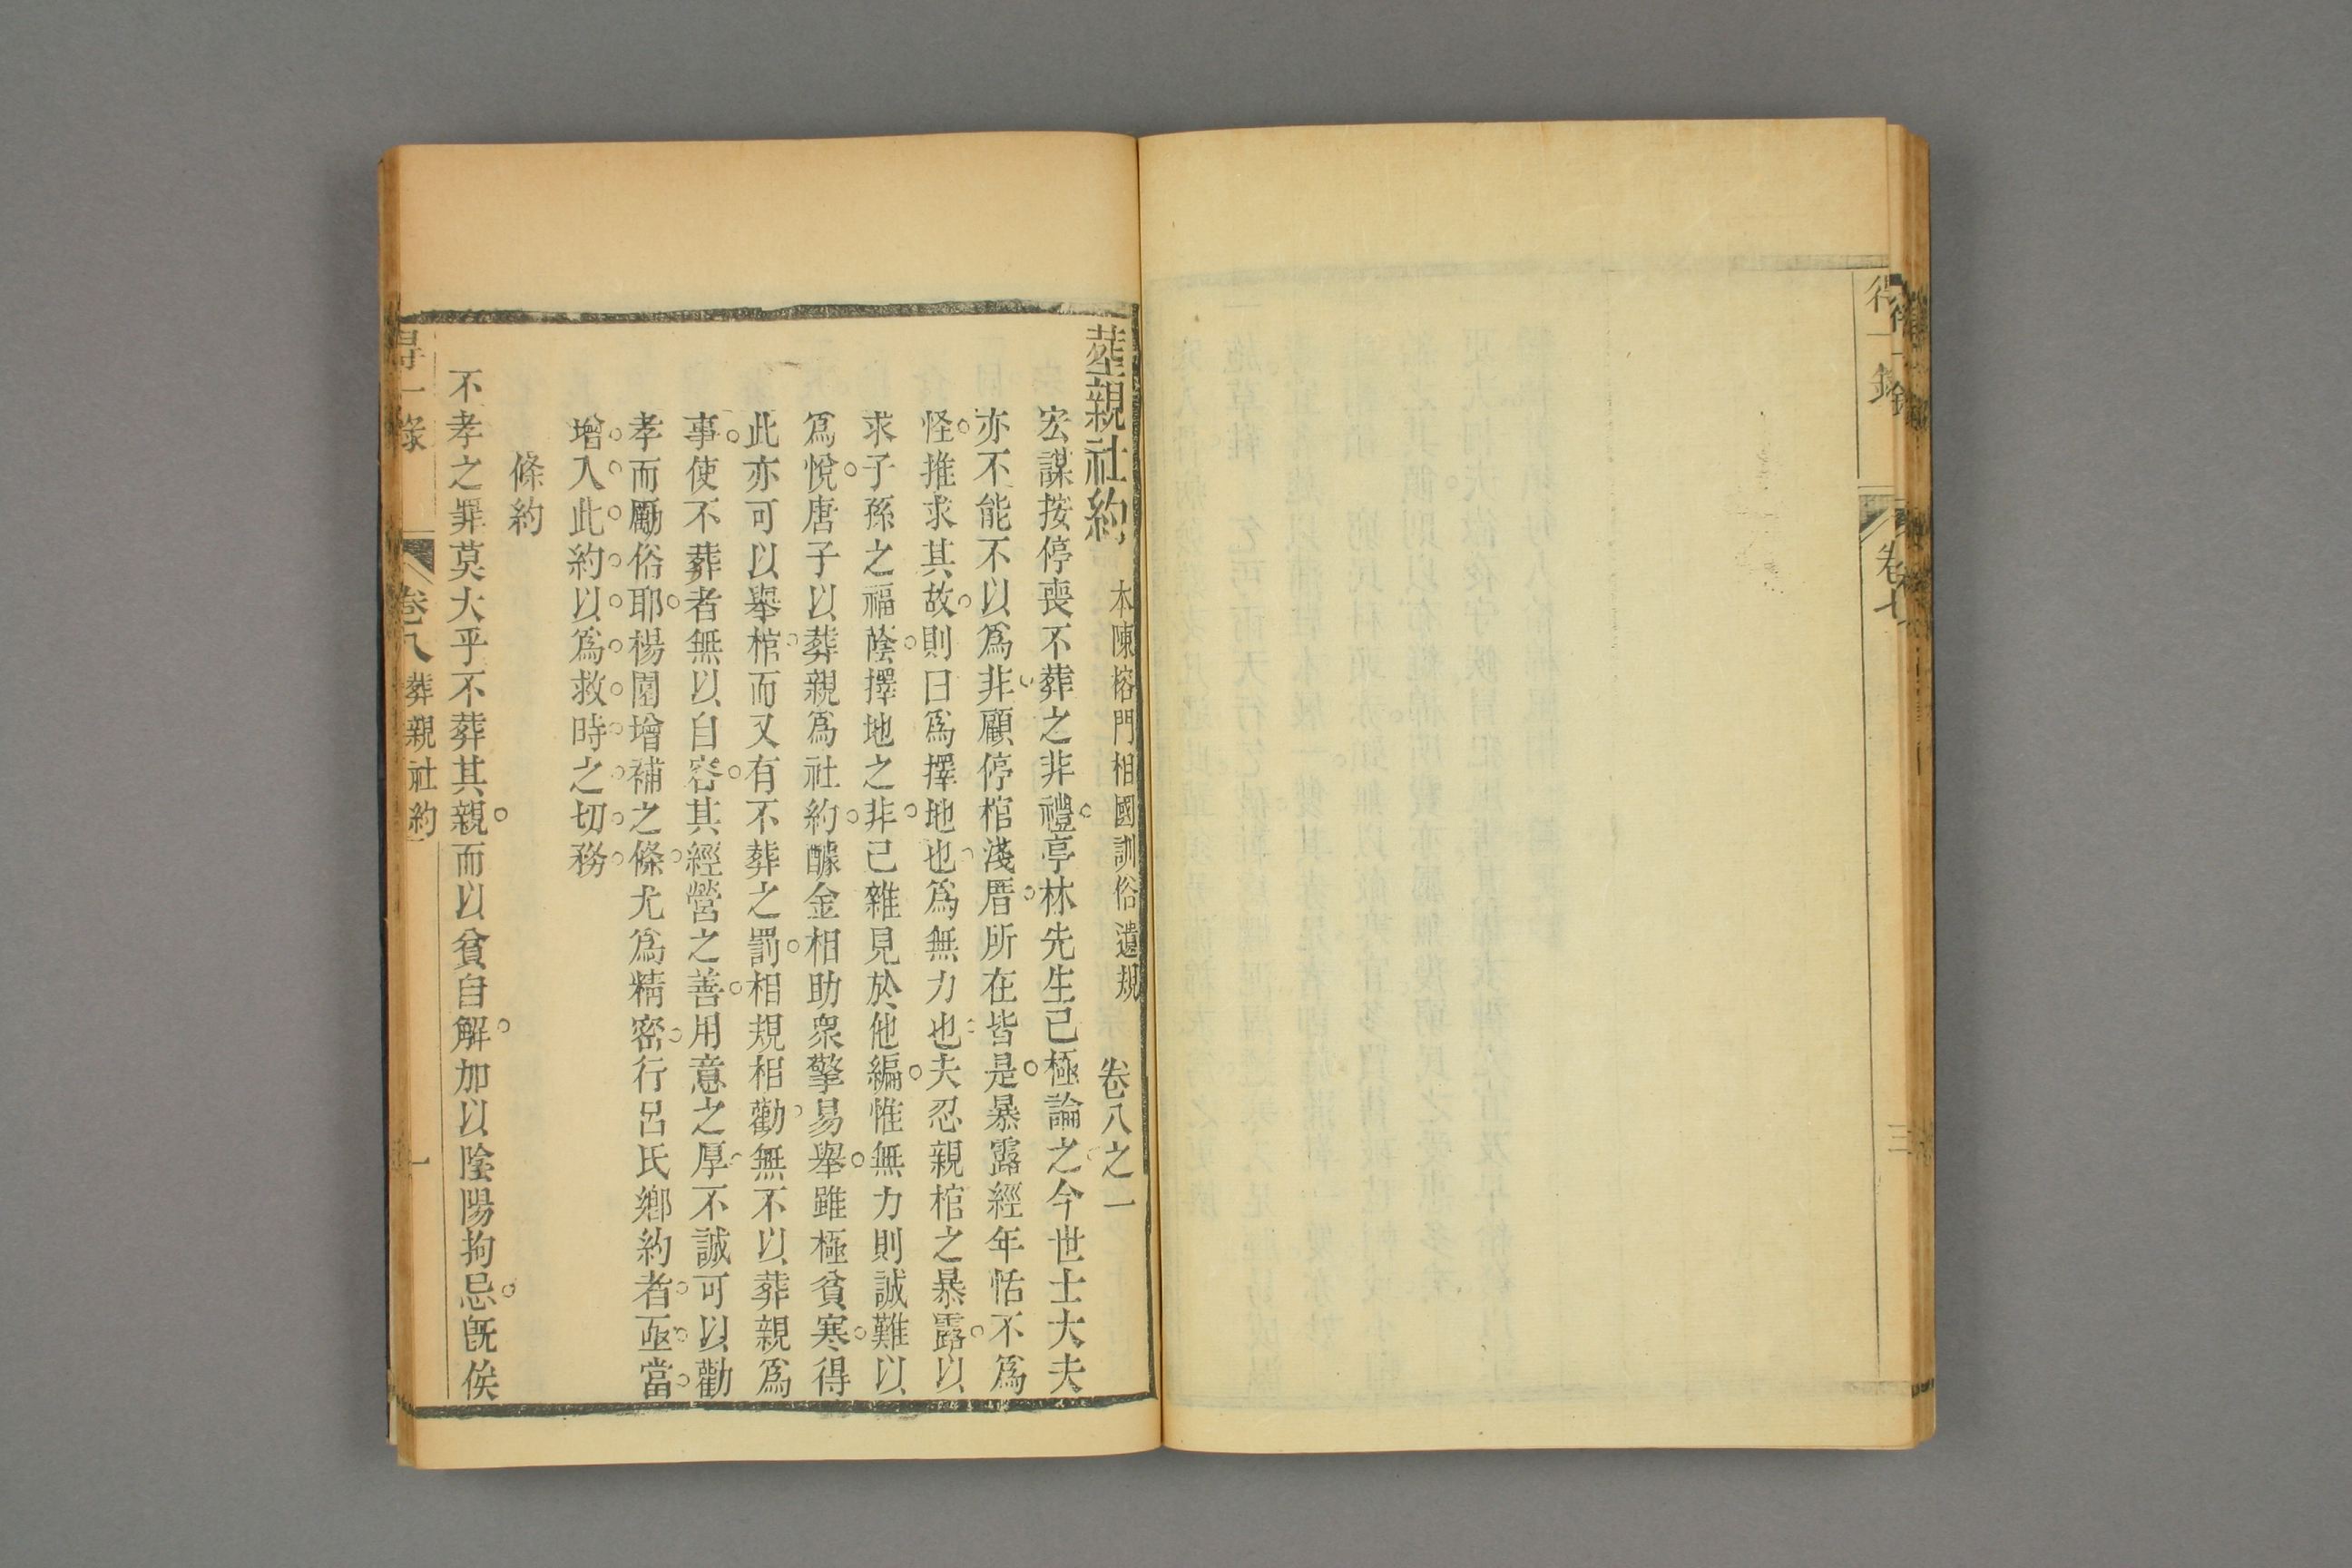 得一錄
卷七
三
葬親社約 本陳榕門相國訓俗遺規 卷八之一
宏謀按停喪不葬之非禮亭林先生已極論之今世士大夫
亦不能不以爲非顧停棺淺厝所在皆是暴露經年恬不爲
怪推求其故則曰爲擇地也爲無力也夫忍親棺之暴露以
求子孫之福蔭擇地之非已雜見於他編惟無力則誠難以
爲悅唐子以葬親爲社約醵金相助衆擎易舉雖極貧寒得
此亦可以舉棺而又有不葬之罰相規相勸無不以葬親爲
事使不葬者無以自容其經營之善用意之厚不誠可以勸
孝而勵俗耶楊園增補之條尤爲精密行呂氏鄉約者亟當
增入此約以爲救時之切務
條約
不孝之罪莫大乎不葬其親而以貧自解加以陰陽拘忌旣俟
得一錄 卷八 葬親社約 一